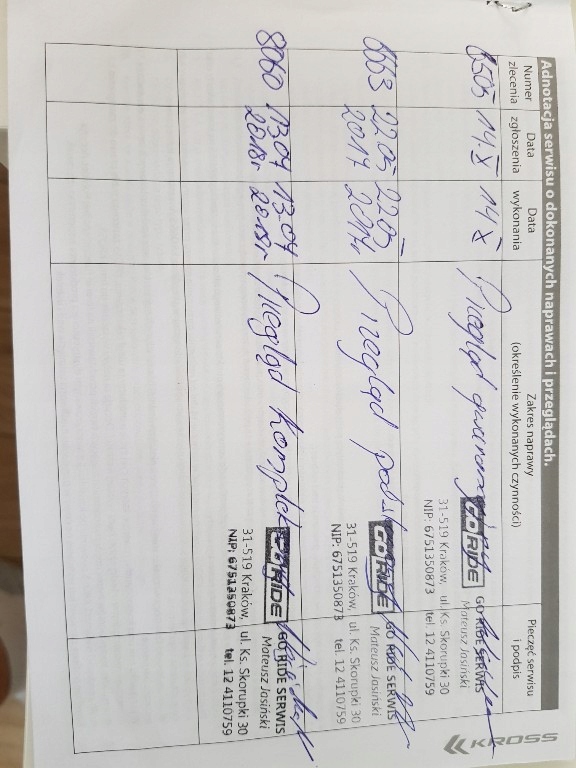 KROSS
Adnotacja serwisu o dokonanych naprawach i przeglądach.
Numer zlecenia
Data zgłoszenia
Data wykonania
Zakres naprawy
(określenie wykonanych czynności)
Pieczęć serwisu i podpis
6505 14.X 14 X Przegląd gwarancyjny
GO RIDE GO RIDE SERWIS
Mateusz Jasiński
31-519 Kraków, ul. Ks. Skorupki 30
NIP: 6751350873 tel. 12 4110759
6663 22.05 2017 22.05 2017r Przegląd podst
GO RIDE GO RIDE SERWIS
Mateusz Jasiński
31-519 Kraków, ul. Ks. Skorupki 30
NIP: 6751350873 tel. 12 4110759
8060 13.07 2018r 13.07 2018r Przegląd komplek
GO RIDE GO RIDE SERWIS
Mateusz Jasiński
31-519 Kraków, ul. Ks. Skorupki 30
NIP: 6751350873 tel. 12 4110759